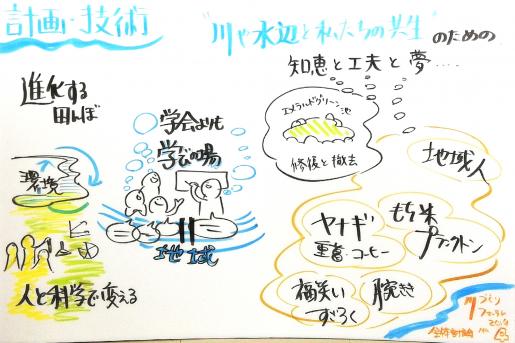 計画・技術
"川や水辺と私たちの共生"のための
知恵と工夫と夢....
進化する
田んぼ
環境
人と科学で変える
学会よりも
学びの場
地域
エメラルドグリーン池
修復と撤去
地域人
ヤナギ
重富・コーヒー
もち米
プランクトン
福笑い
すごろく
腕きき
川づくり
フォーラム
全体討論